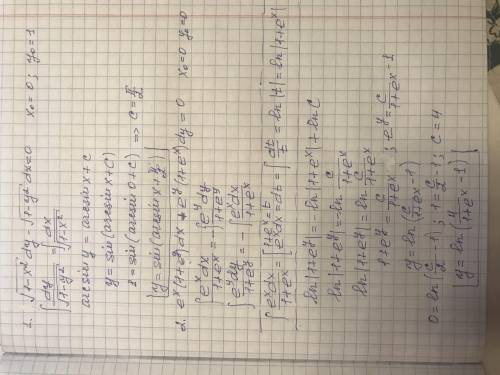 1. √1-x² dy - √1-y² dx=0 x₀=0; y₀=1
∫ dy/√1-y² = ∫ dx/√1-x²
arcsin y = arcsin x + c
y = sin(arcsin x + C)
1 = sin(arcsin 0 + C) => C = π/2
[y = sin(arcsin x + π/2)]
2. eˣ(1+e^y)dx + e^y(1+eˣ)dy = 0 x₀=0 y₀=0
∫ eˣdx/1+eˣ = -∫ e^y dy/1+e^y
∫ e^y dy/1+e^y = -∫ eˣdx/1+eˣ
∫ eˣdx/1+eˣ = [1+eˣ=t eˣdx=dt] = ∫ dt/t = ln|t| = ln|1+eˣ|
ln|1+e^y| = -ln|1+eˣ| + ln C
ln|1+e^y| = ln C/1+eˣ
ln|1+e^y| = ln C/1+eˣ
1+e^y = C/1+eˣ ; e^y = C/1+eˣ - 1
y = ln(C/1+eˣ - 1)
0 = ln(C/2 - 1); 1 = C/2 - 1; C = 4
[y = ln(4/1+eˣ - 1)]